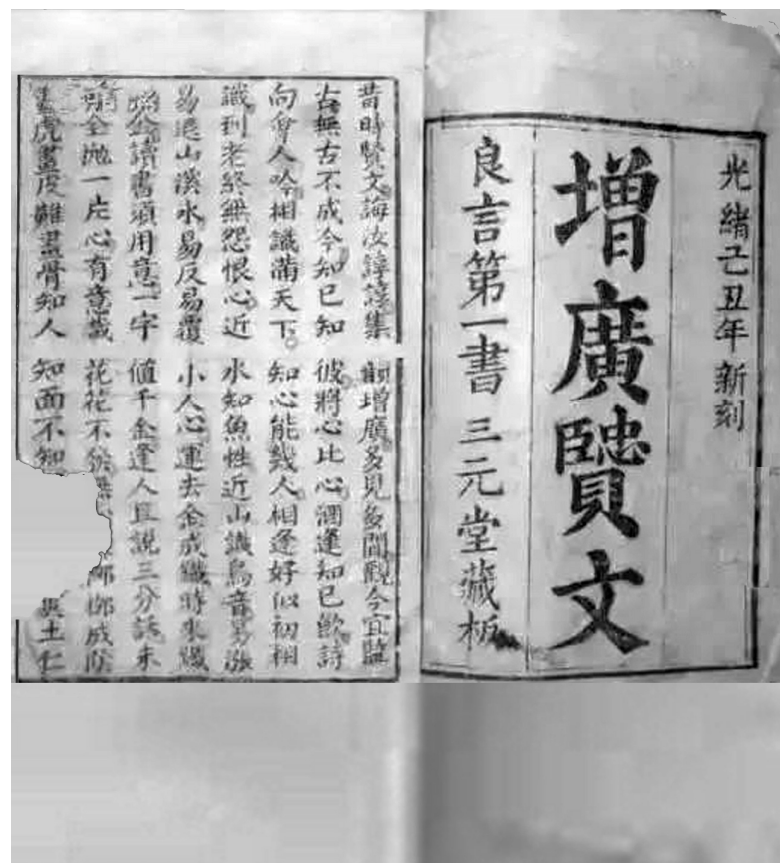 光緒己丑年新刻
增廣贒文
良言第一書 三元堂藏板
昔時賢文誨汝諄諄集韻增廣多見多聞觀今宜鑒
古無古不成今知已知彼將心比心酒逢知已飲詩
向會人吟相識滿天下。知心能幾人相逢好似初相
識到老終無怨恨心近水知魚性近山識鳥音易漲
易退山溪水易反易覆小人心運去金成鐵時來鐵
金讀書須用意一字值千金逢人且說三分話未
可全拋一片心有意栽花花不發無柳柳成陰
畫虎畫皮難畫骨知人知面不知土仁